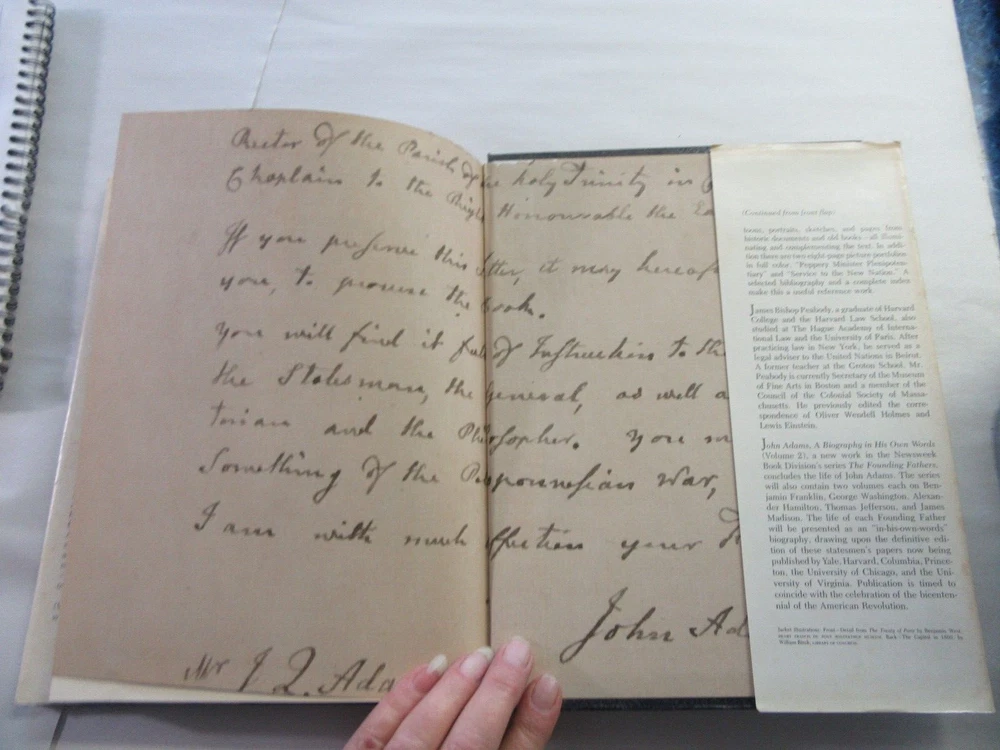 Rector of the Parish of the holy Trinity in
Chaplain to the Right Honourable the
If you preserve this letter, it may hereaf
you, to peruse the book.
you will find it full of Instruction to the
the Statesman, the General, as well a
torian and the Philosopher. you m
Something of the Peloponnesian War,
I am with much affection your
John Ad
Mr J. Q. Ada
(Continued from front flap)
toons, portraits, sketches, and pages from
historic documents and old books—all illumi-
nating and complementing the text. In addi-
tion there are two eight-page picture portfolios
in full color, "Peppery Minister Plenipoten-
tiary" and "Service to the New Nation." A
selected bibliography and a complete index
make this a useful reference work.
James Bishop Peabody, a graduate of Harvard
College and the Harvard Law School, also
studied at The Hague Academy of Interna-
tional Law and the University of Paris. After
practicing law in New York, he served as a
legal adviser to the United Nations in Beirut.
A former teacher at the Groton School, Mr.
Peabody is currently Secretary of the Museum
of Fine Arts in Boston and a member of the
Council of the Colonial Society of Massa-
chusetts. He previously edited the corre-
spondence of Oliver Wendell Holmes and
Lewis Einstein.
John Adams, A Biography in His Own Words
(Volume 2), a new work in the Newsweek
Book Division's series The Founding Fathers,
concludes the life of John Adams. The series
will also contain two volumes each on Ben-
jamin Franklin, George Washington, Alexan-
der Hamilton, Thomas Jefferson, and James
Madison. The life of each Founding Father
will be presented as an "in-his-own-words"
biography, drawing upon the definitive edi-
tion of these statesmen's papers now being
published by Yale, Harvard, Columbia, Prince-
ton, the University of Chicago, and the Uni-
versity of Virginia. Publication is timed to
coincide with the celebration of the bicenten-
nial of the American Revolution.
Jacket Illustrations: Front—Detail from The Treaty of Paris by Benjamin West,
HENRY FRANCIS DU PONT WINTERTHUR MUSEUM. Back—The Capitol in 1800, by
William Birch, LIBRARY OF CONGRESS.